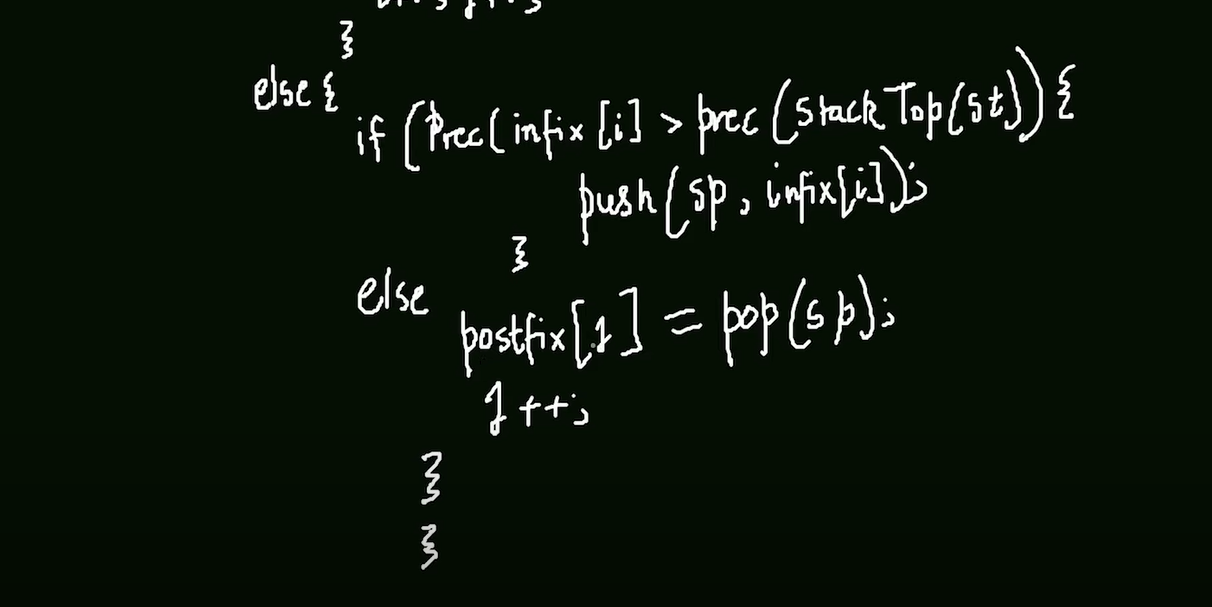 }
else {
if (Prec(infix[i] > prec(stackTop(st)) {
push(sp, infix[i]);
}
else
postfix[j] = pop(sp);
j++;
}
}